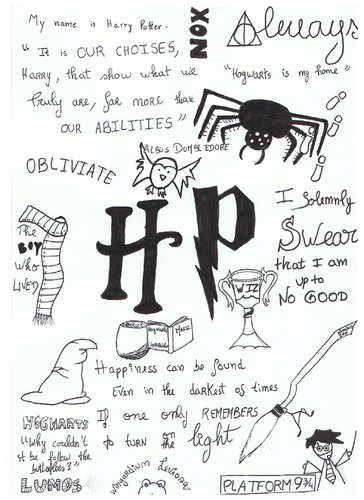 My name is Harry Potter.
NOX
Always
"It is OUR CHOISES,
Harry, that show what we
truly are, far more than
OUR ABILITIES"
ALBUS DUMBLEDORE
"Hogwarts is my home"
OBLIVIATE
HP
I Solemnly
Swear
that I am
up to
NO GOOD
The
BOY
Who
LIVED
WIZ
Happiness can be found
Even in the darkest of times
If one only REMEMBERS
to turn on the light
HOGWARTS
"Why couldn't
it be follow the
butterflies?"
LUMOS
Wingardium Leviosa
PLATFORM 9¾